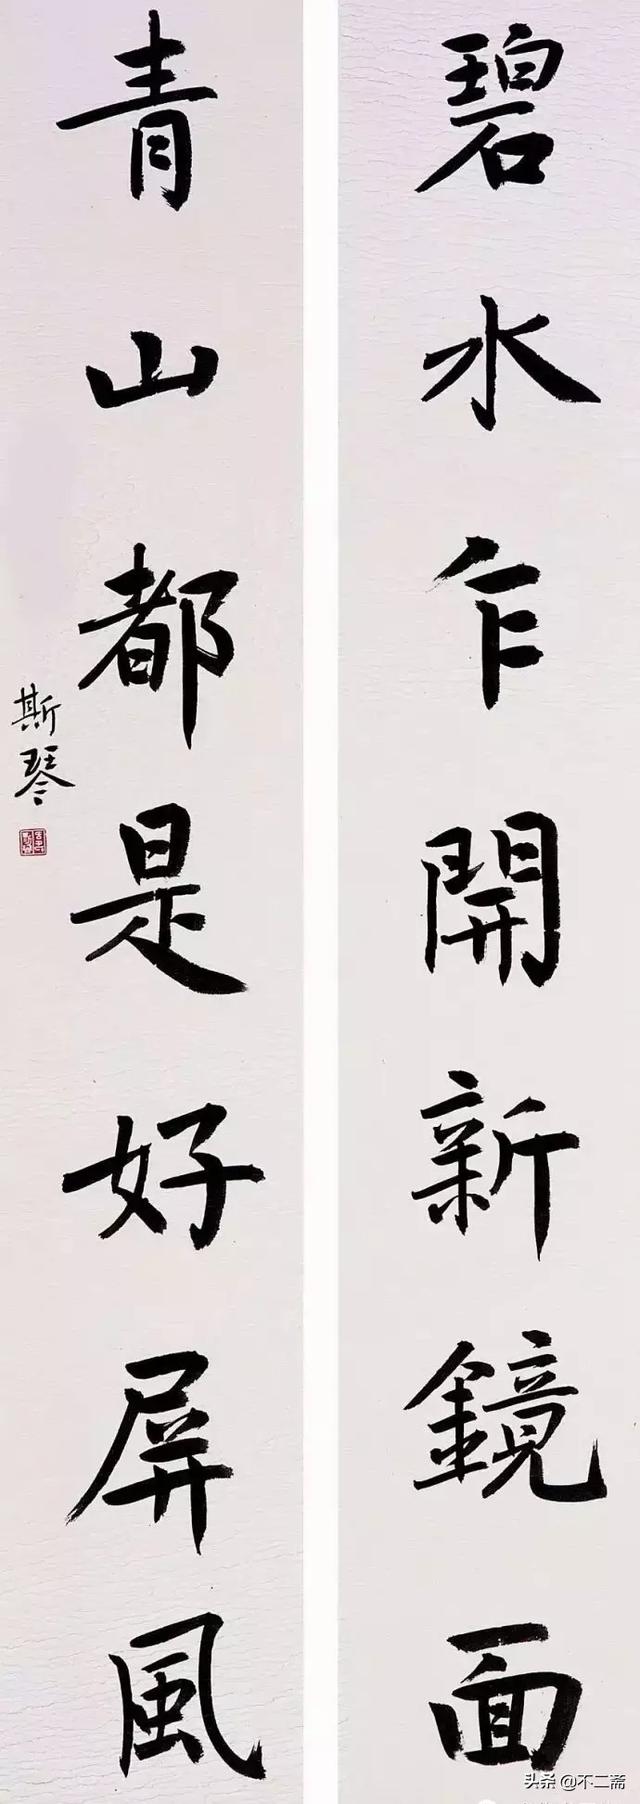 碧水乍開新鏡面
青山都是好屏風
斯琴
头条 @不二斋